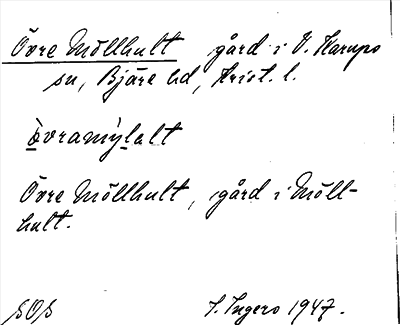 Övre Möllhult gård i V. Karups
sn, Bjäre hd, Krist. l.
òvramỳlalt
Övre Möllhult, gård i Möll-
hult.
SOS S. Ingers 1947.